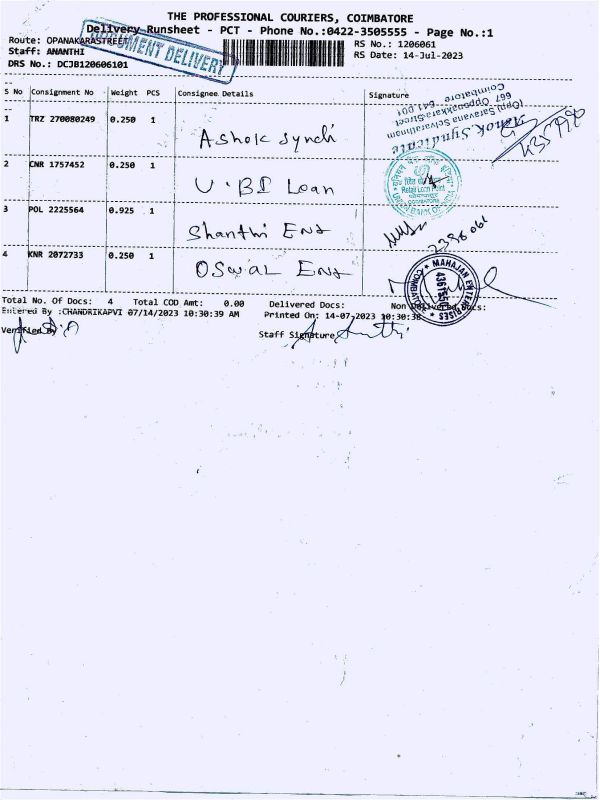 THE PROFESSIONAL COURIERS, COIMBATORE
Delivery Runsheet - PCT - Phone No.:0422-3505555 - Page No.:1
Route: OPANAKARASTREET
DOCUMENT DELIVERY
RS No.: 1206061
Staff: ANANTHI
RS Date: 14-Jul-2023
DRS No.: DCJB120606101
S No Consignment No Weight PCS Consignee Details Signature
1 TRZ 270080249 0.250 1 Ashok Syndi
Ashok Syndicate
(Opp) Saravana Selvarathnam
667, Oppanakkara Street
Coimbatore - 641 001
2 CNR 1757452 0.250 1 U.BI Loan
Retail Loan Point
UNION BANK OF INDIA
3 POL 2225564 0.925 1 Shanthi Ent
4 KNR 2072733 0.250 1 Oswal Ent
MAHAJAN ENTERPRISES
COIMBATORE
Total No. Of Docs: 4 Total COD Amt: 0.00 Delivered Docs: Non Delivered Docs:
Entered By :CHANDRIKAPVI 07/14/2023 10:30:39 AM Printed On: 14-07-2023 10:30:38
Verified By
Staff Signature